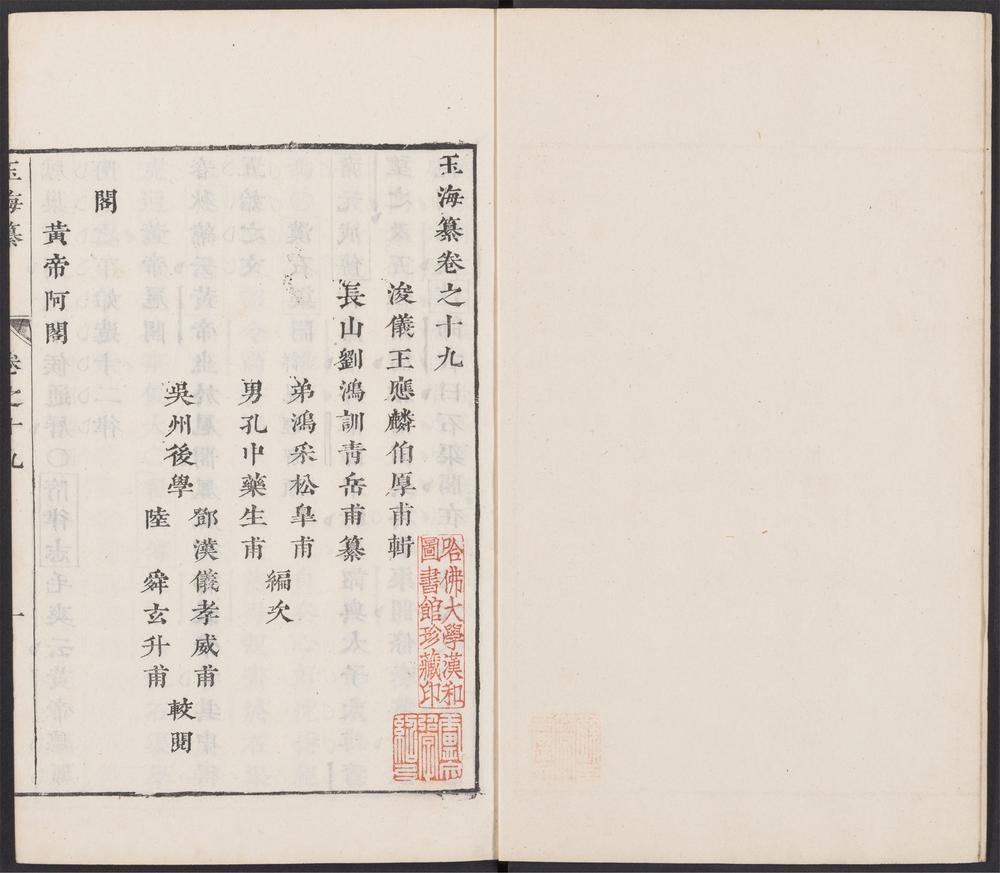 玉海纂卷之十九
浚儀王應麟伯厚甫輯
長山劉鴻訓青岳甫纂
弟鴻采松臯甫
男孔中藥生甫
編次
吳州後學
鄧漢儀孝威甫
陸舜玄升甫
較閱
閣
黃帝阿閣
玉海纂
卷之十九
一
哈佛大學漢和
圖書館珍藏印